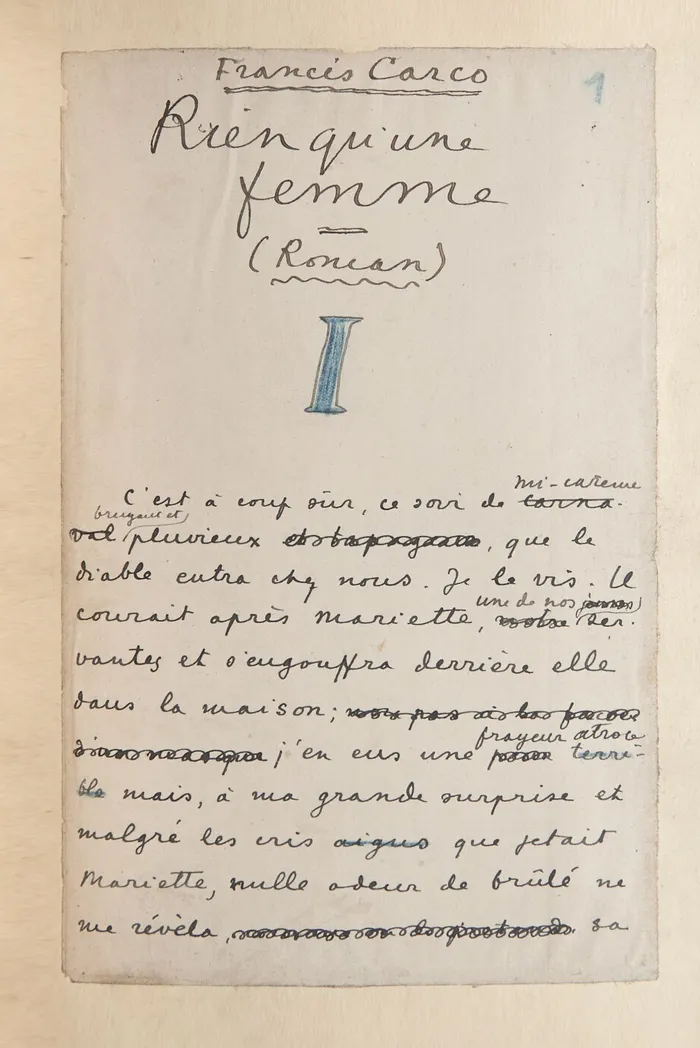 Francis Carco
1
Rien qu'une
femme
(Roman)
I
mi-carême
C'est à coup sûr, ce soir de carna-
bruyant et
val pluvieux, que le
diable entra chez nous. Je le vis. Il
une de nos
courait après Mariette, notre ser-
vantes et s'engouffra derrière elle
dans la maison;
frayeur atroce
j'en eus une terri-
ble mais, à ma grande surprise et
malgré les cris aigus que jetait
Mariette, nulle odeur de brûlé ne
me révéla, sa